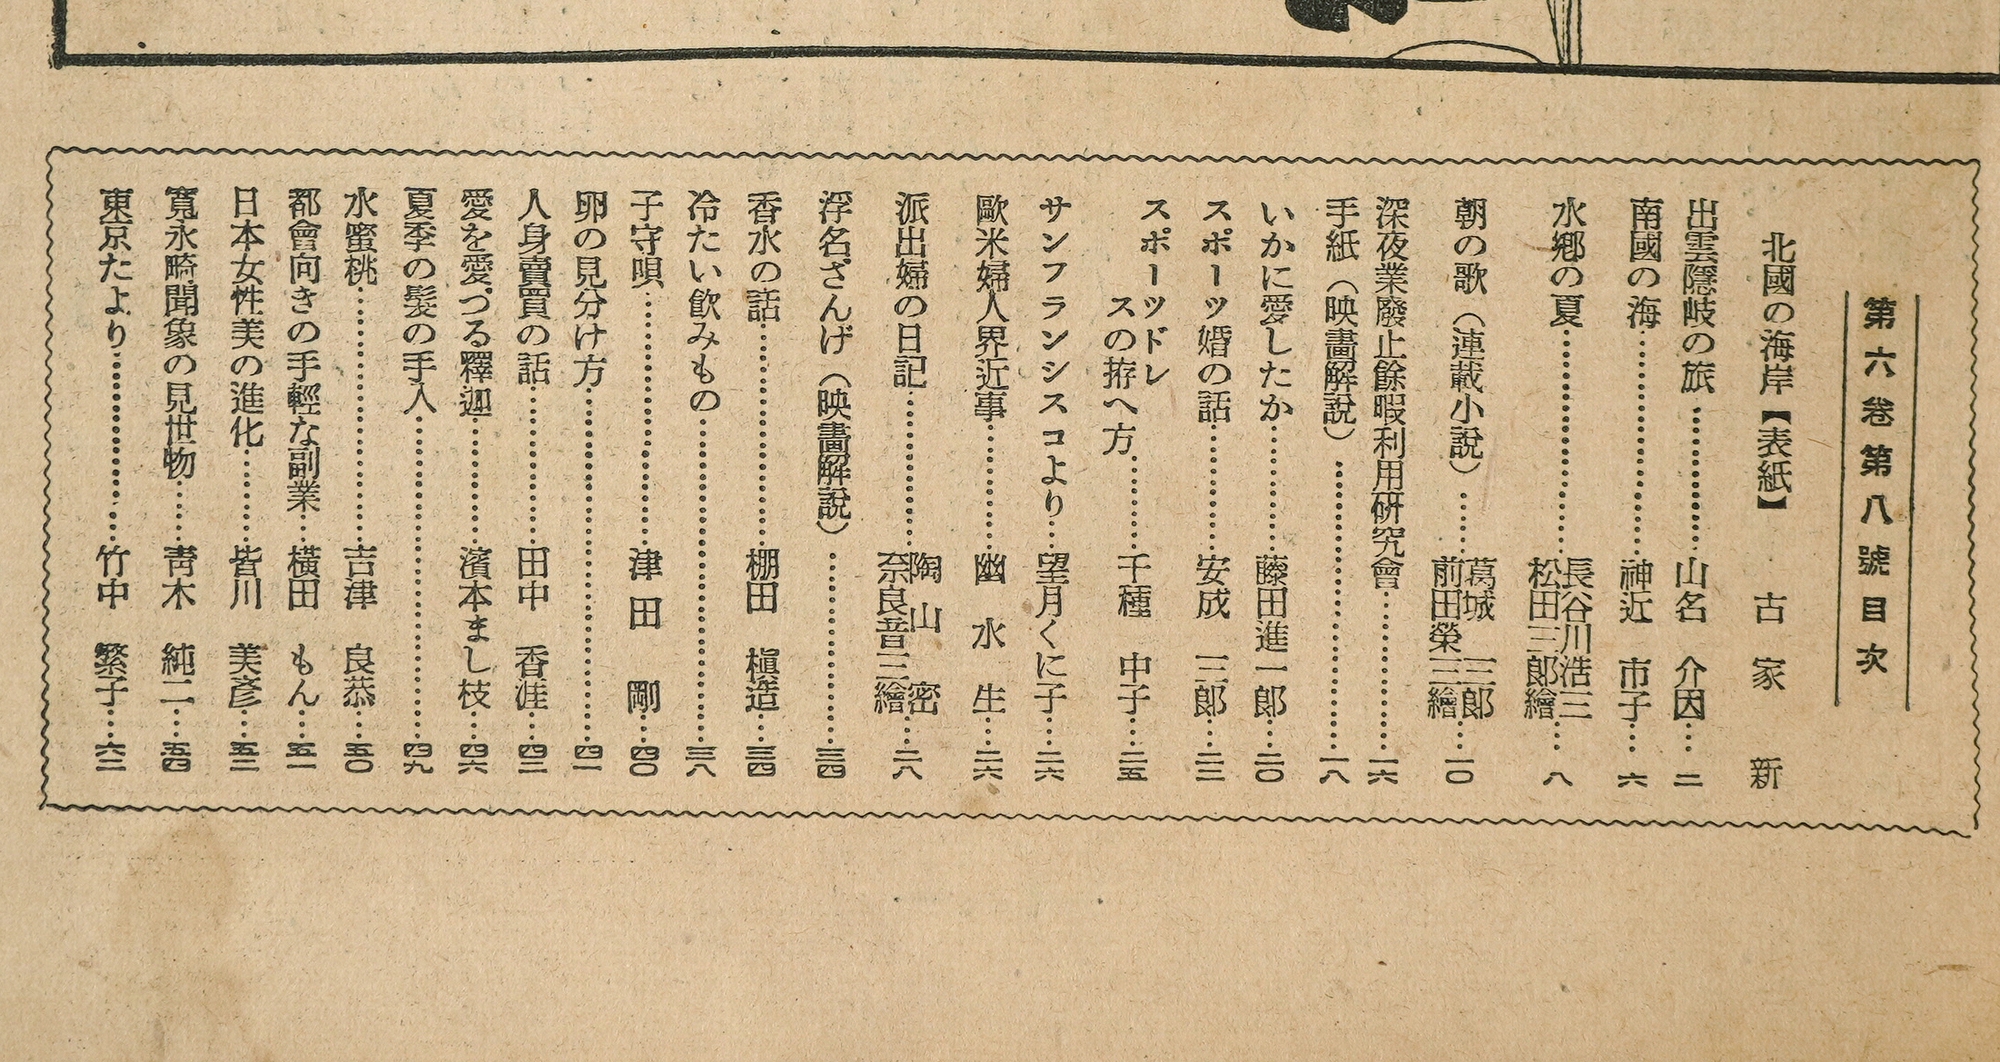 第六卷第八號目次
北國の海岸【表紙】 古家新
出雲隱岐の旅……山名 介因…二
南國の海……神近 市子…六
水鄕の夏……長谷川浩三 松田三郞繪…八
朝の歌（連載小說）……葛城 三郞 前田榮三繪…一〇
深夜業廢止餘暇利用硏究會……一六
手紙（映畫解說）……一八
いかに愛したか……藤田進一郞…二〇
スポーツ婚の話……安成 三郞…二二
スポーツドレスの拵へ方……千種 中子…二五
サンフランシスコより…望月くに子…二六
歐米婦人界近事……幽水生…二六
派出婦の日記……陶山 密 奈良音三繪…二八
浮名ざんげ（映畫解說）……三四
香水の話……棚田 槇造…三四
冷たい飮みもの……三八
子守唄……津田 剛…四〇
卵の見分け方……四一
人身賣買の話……田中 香涯…四二
愛を愛づる釋迦……濱本まし枝…四六
夏季の髮の手入……四九
水蜜桃……吉津 良恭…五〇
都會向きの手輕な副業…橫田 もん…五一
日本女性美の進化……皆川 美彥…五二
寬永畸聞象の見世物……靑木 純二…五四
東京たより……竹中 繁子…六二